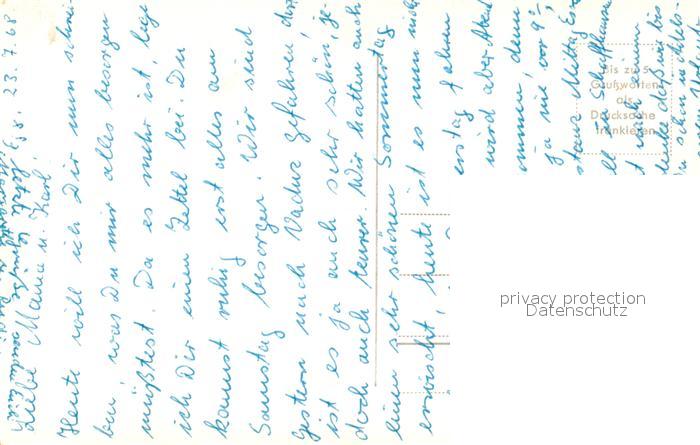 23.7.68
Liebe Mama u. Karl!
Heute will ich Dir nun schrei-
ben, was Du mir alles besorgen
müßtest. Da es mehr ist, lege
ich Dir einen Zettel bei. Du
kannst ruhig erst alles am
Samstag besorgen. Wir sind
gestern nach Vaduz gefahren, dort
ist es ja auch sehr schön, je-
doch auch teurer. Wir hatten auch
einen sehr schönen Sommertag
erwischt, heute ist es nun nicht
erstag fahren
wird aber Abend
ommen, denn
ja nie vor 9h,
stanz Mittag Es
ll in Schaffhause
t nach einem
denke daß wir bis
schon
Bis zu 5
Grußworten
als
Drucksache
frankieren
privacy protection
Datenschutz